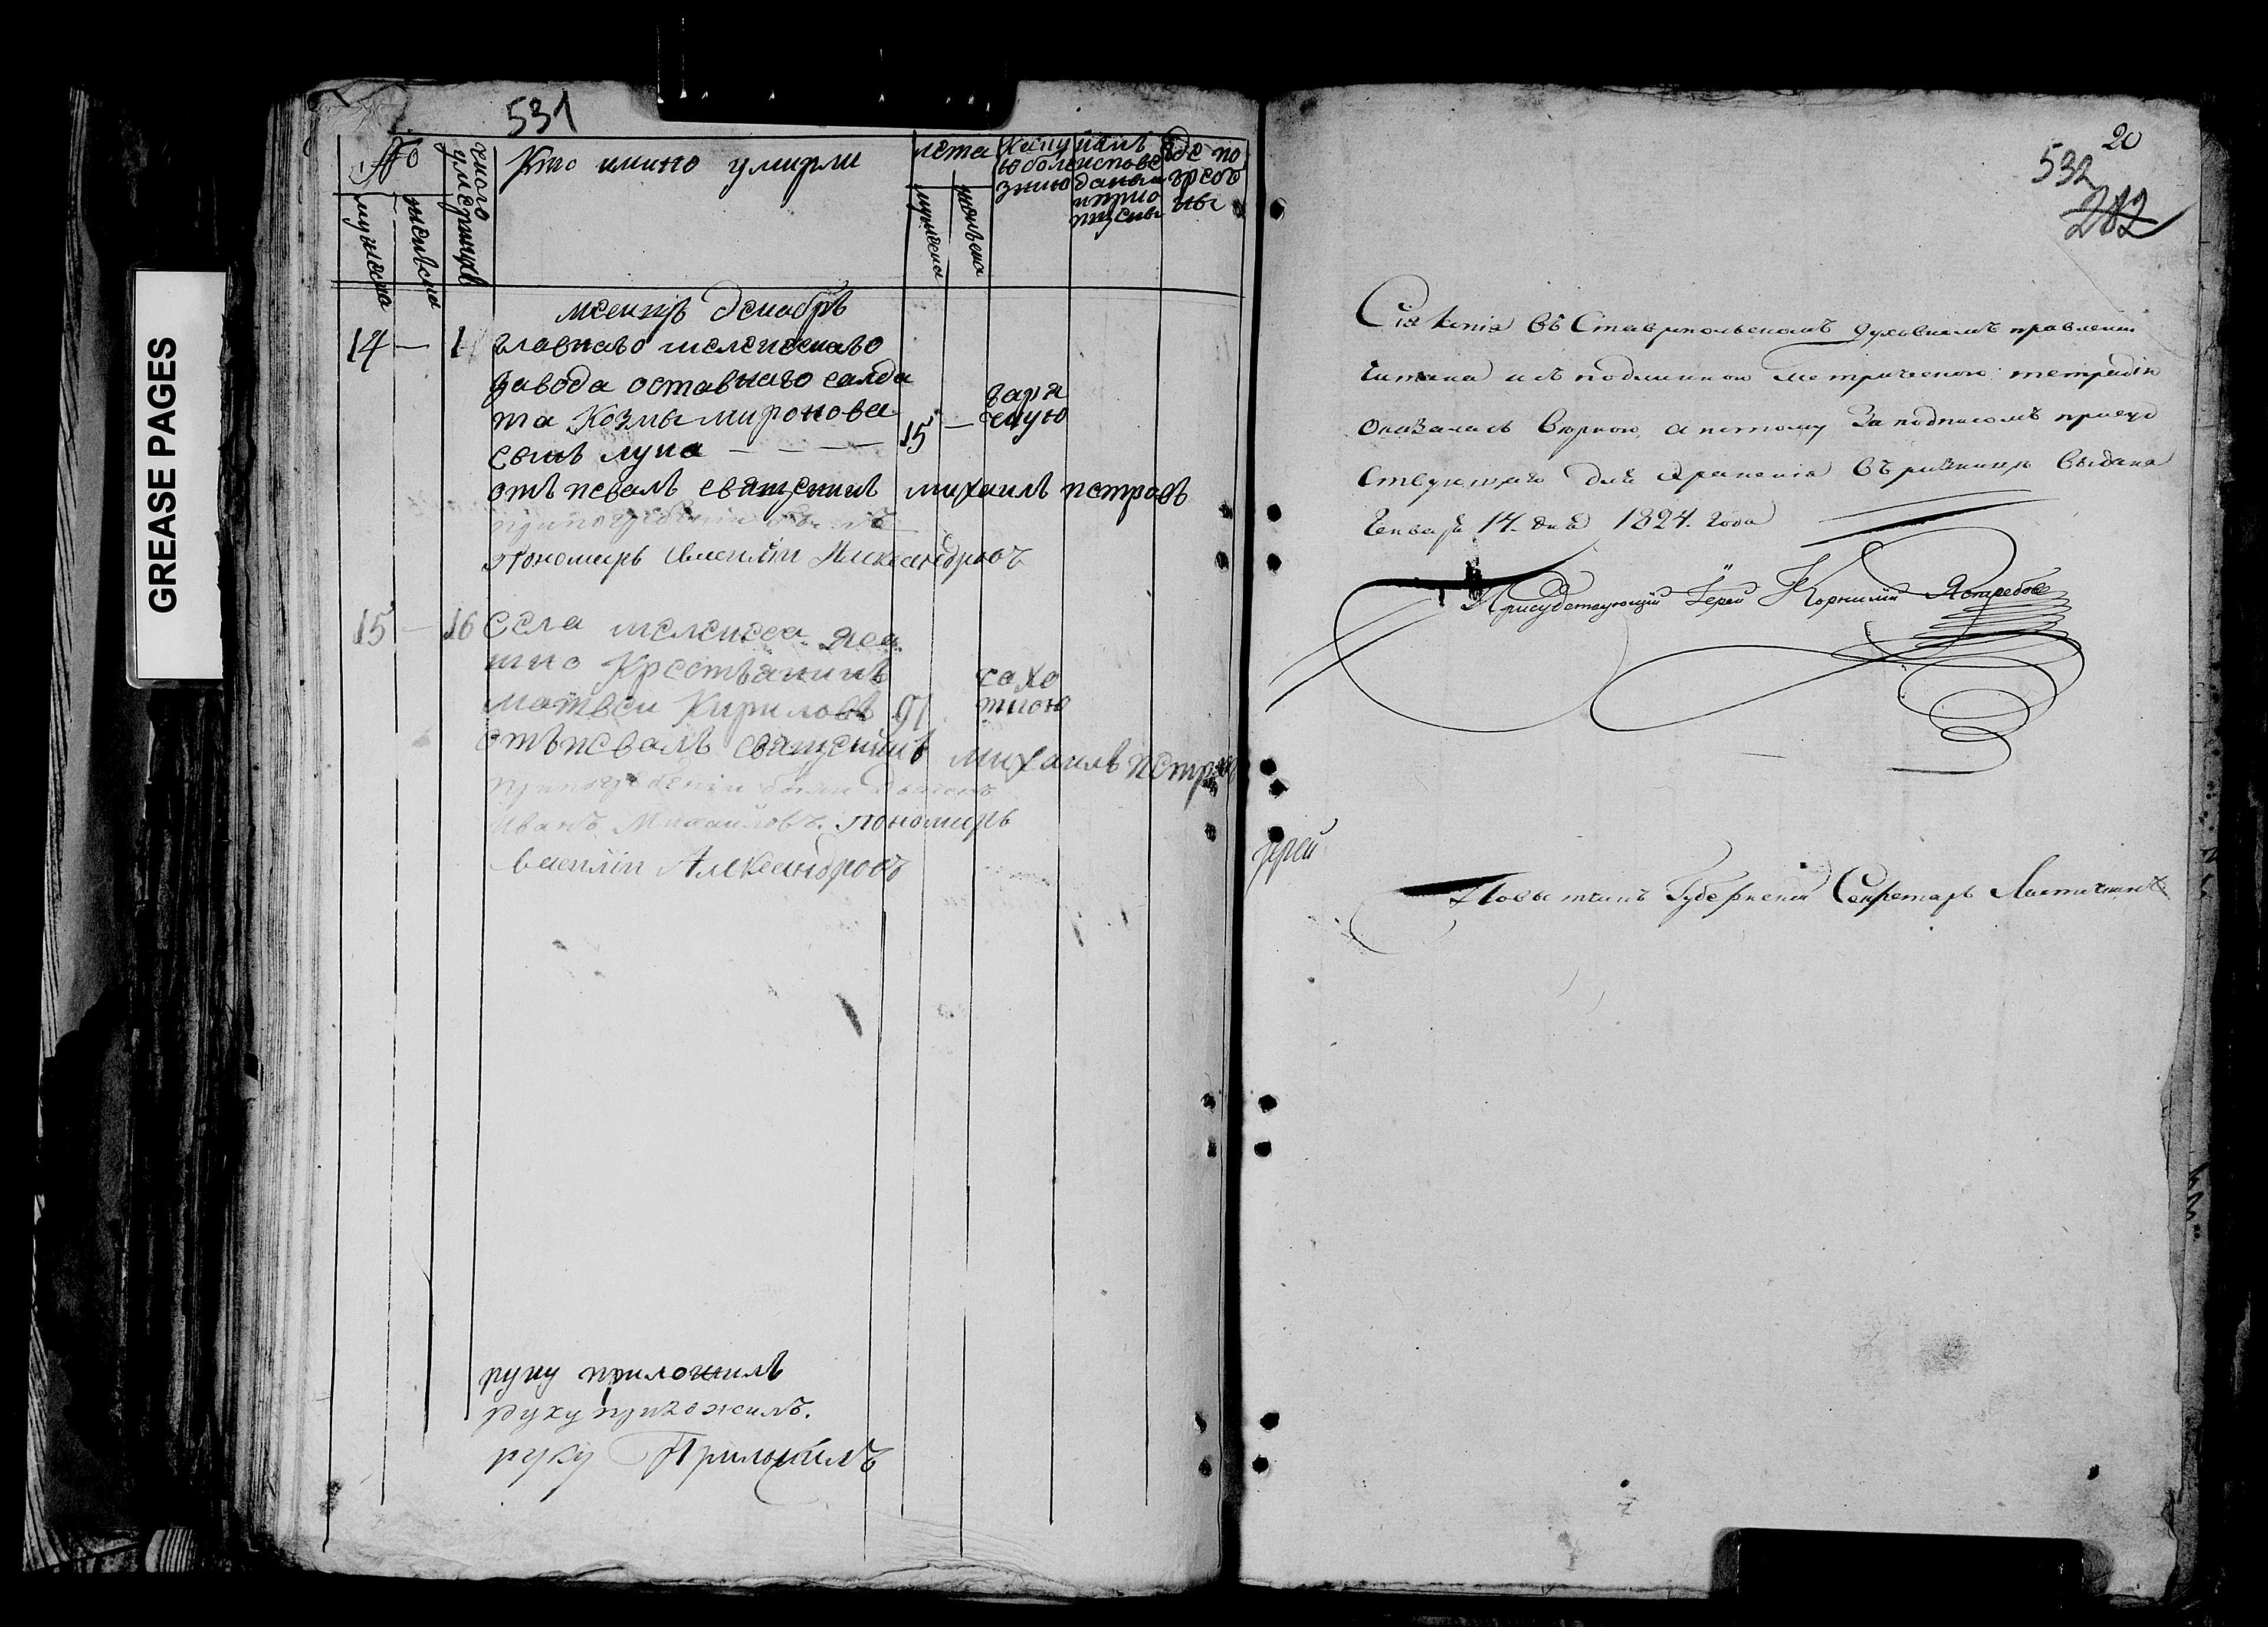 GREASE PAGES
531
№
мужеска
женска
коего
умершихъ
Кто имино умирли
лета
мужеска
женска
Какую болезнию
кемъ исповеданы и приопщены
где погребены
месицъ декабрь
14 — 1 главнаво мелекескаво
завода оставнаго салда
та Козмы миронова
сынъ лука — — — 15 — гаря
чкую
отъпевалъ священикъ михаилъ петровъ
при погребении былъ
пономарь Василии Александровъ
15 — 16 села мелекеса яса
шно Крестьянинъ
матвеи Кириловъ 91 сахо
ткою
отъпевалъ священикъ михаилъ петровъ
при погребении были дьяконъ
Иванъ Михаиловъ. пономарь
василии Александровъ
руку приложилъ
руку приложилъ.
руку Приложилъ
20
532
202
Сія копія въ Ставропольскомъ духовномъ правлении
читана и съ подлинною метрическою тетрадью
оказалась верною, а потому за подписомъ присуд
ствующаго для хранения въ ризницу выдана
Генваря 14. дня 1824. года
Присудствующий Іерей Корнилий Ястребовъ
Іерей
Повытчикъ Губернский Секретарь Ласточкинъ